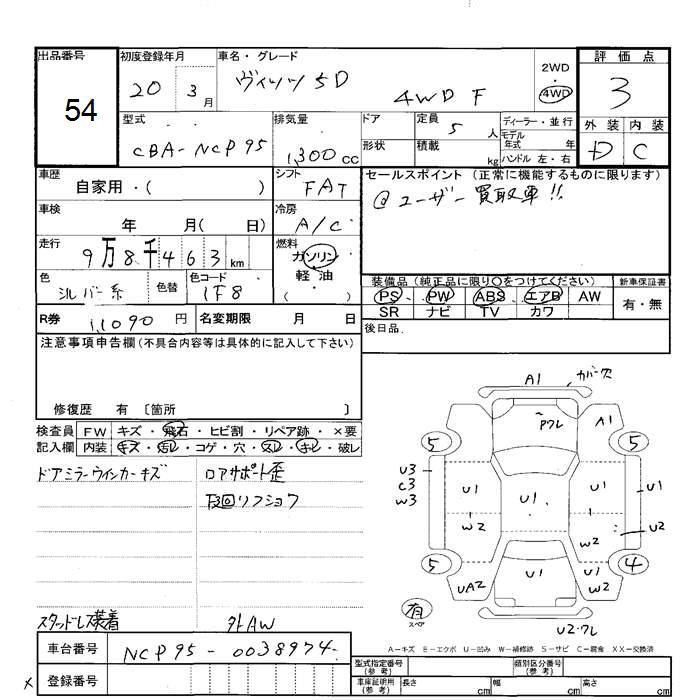 出品番号 初度登録年月 車名・グレード 評価点
54 20 3月 ヴィッツ 5D 4WD F 2WD 4WD 3
型式 排気量 ドア 定員 ディーラー・並行 外装 内装
CBA-NCP95 1,300cc 5人 モデル年式 年 D C
形状 積載 kg ハンドル 左・右
車歴 シフト セールスポイント (正常に機能するものに限ります)
自家用・( ) FAT @ユーザー買取車!!
車検 冷房
年 月( 日) A/C
走行 燃料
9万8千463km ガソリン
軽油
( )
色 色替 色コード 装備品 (純正品に限り○をつけてください) 新車保証書
シルバー系 1F8 PS PW ABS エアB AW 有・無
SR ナビ TV カワ
R券 1,1090円 名変期限 月 日 後日品
注意事項申告欄(不具合内容等は具体的に記入して下さい)
修復歴 有 〔箇所 〕
検査員 FW キズ・飛石・ヒビ割・リペア跡・×要
記入欄 内装 キズ・汚レ・コゲ・穴・スレ・キレ・破レ
ドアミラーウインカーキズ ロアサポート歪
下回リフショク
スタッドレス装着 外AW
A1 カバー穴
アクレ A1
5 5
U3
C3
W3
U1 U1 U1 U1
W2 W2 U2
5 4
UA2 U1 U1
W2
有
スペア
U2・クレ
A-キズ E-エクボ U-凹み W-補修跡 S-サビ C-腐食 XX-交換済
車台番号 NCP95-0038974-
型式指定番号 (参考) 類別区分番号 (参考)
登録番号 車庫証明用 (参考) 長さ cm 幅 cm 高さ cm
×